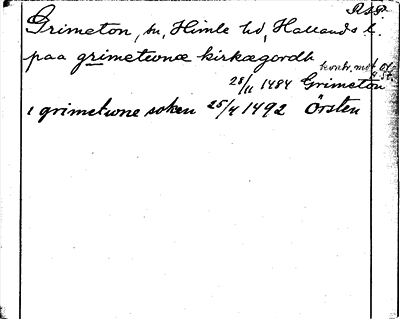 R.S.P.
Grimeton, sn, Himle hd, Hallands l.
paa grimetwonæ kirkægordh
28/11 1484 Grimeton
i grimetwone soken 25/4 1492 Örsten